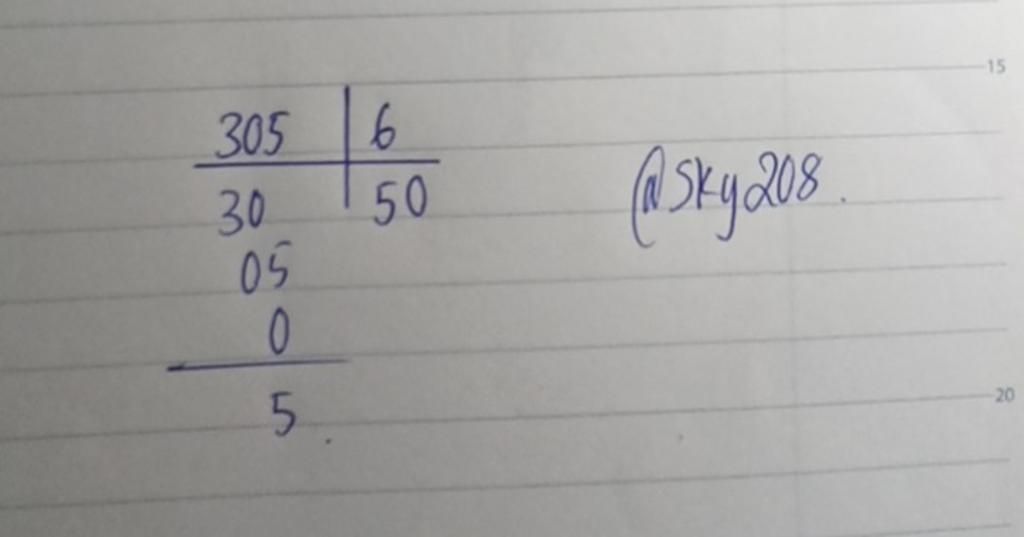 305 6
30 50
05
0
5.
@Sky208.
15
20